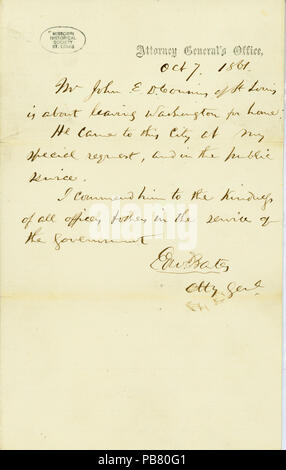 MISSOURI
HISTORICAL
SOCIETY
ST. LOUIS
Attorney General's Office,
Oct 7. 1861.
Mr John E. D. Couzins of St Louis
is about leaving Washington for home.
He came to this City at my
special request, and in the public
service.
I commend him to the kindness
of all officers, & others in the service of
the Government
Edw. Bates
Atty Genl
alamy
alamy
PB80G1